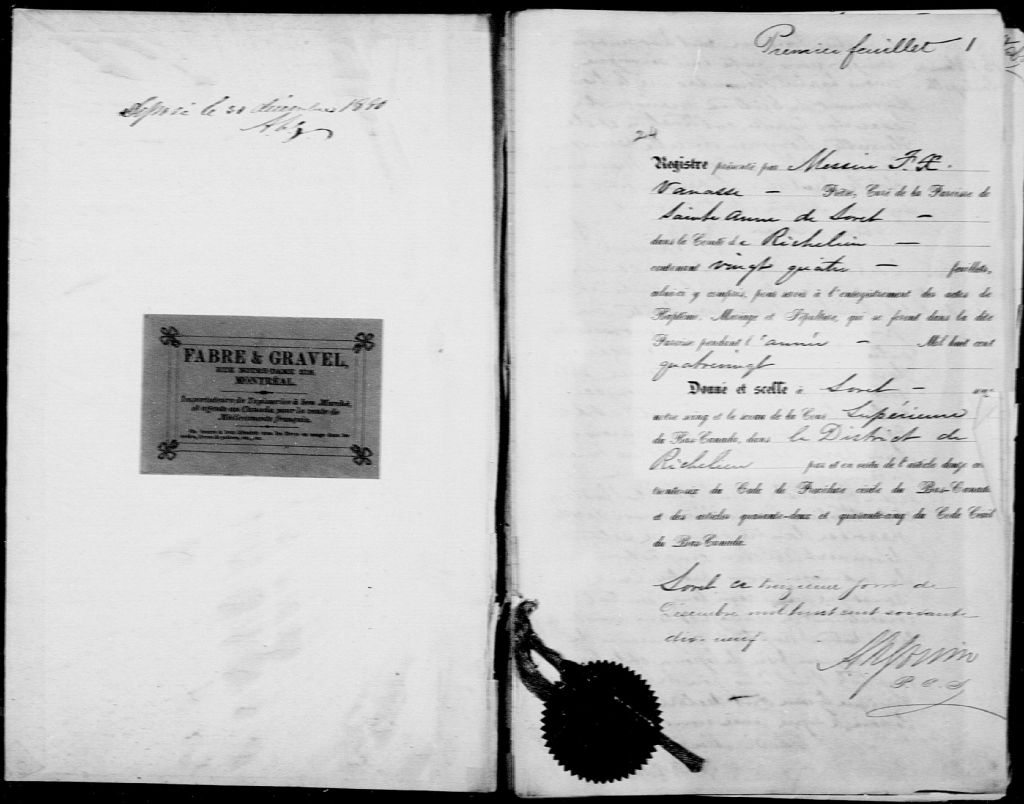 Déposé le 30 décembre 1880
Premier feuillet 1
24
Registre présenté par Messire F. X.
Vanasse — Prêtre, Curé de la Paroisse de
Sainte Anne de Sorel —
dans le Comté de Richelieu —
contenant vingt quatre — feuillets,
celui-ci y compris, pour servir à l'enregistrement des actes de
Baptême, Mariage et Sépulture, qui se feront dans la dite
Paroisse pendant l'année — Mil huit cent
quatrevingt
Donné et scellé à Sorel — sous
notre seing et le sceau de la Cour Supérieure
du Bas-Canada, dans le District de
Richelieu par et en vertu de l'article douze cent
trente-six du Code de Procédure civile du Bas-Canada
et des articles quarante-deux et quarante-cinq du Code Civil
du Bas-Canada.
Sorel ce treizième jour de
Décembre mil huit cent soixante
dix-neuf.
P. C. S.
FABRE & GRAVEL,
RUE NOTRE-DAME
MONTRÉAL.
Importateurs de Tapisseries à bon Marché,
et agents au Canada pour la vente de
Médicaments français.